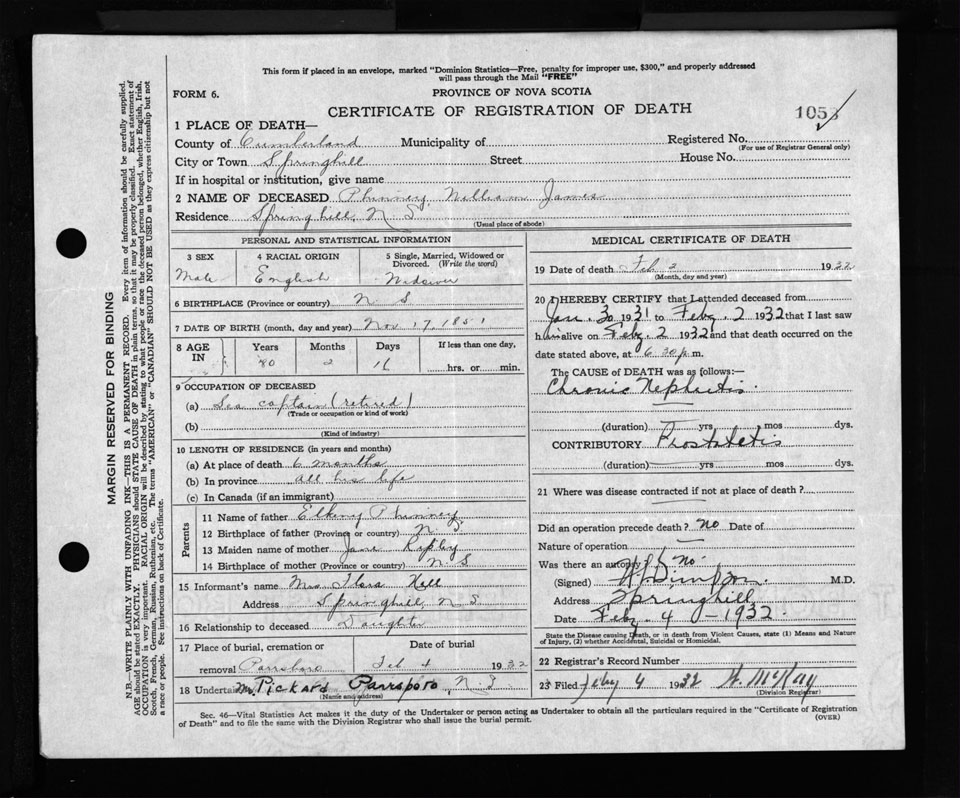 This form if placed in an envelope, marked "Dominion Statistics—Free, penalty for improper use, $300," and properly addressed
will pass through the Mail "FREE"
FORM 6.
PROVINCE OF NOVA SCOTIA
CERTIFICATE OF REGISTRATION OF DEATH
1053
1 PLACE OF DEATH—
County of Cumberland Municipality of Registered No.
(For use of Registrar General only)
City or Town Springhill Street House No.
If in hospital or institution, give name
2 NAME OF DECEASED Phinney William James
Residence Springhill, N S
(Usual place of abode)
PERSONAL AND STATISTICAL INFORMATION
3 SEX 4 RACIAL ORIGIN 5 Single, Married, Widowed or Divorced. (Write the word)
Male English Widower
6 BIRTHPLACE (Province or country) N S
7 DATE OF BIRTH (month, day and year) Nov 17, 1851
8 AGE IN Years Months Days If less than one day,
80 2 16 hrs. or min.
9 OCCUPATION OF DECEASED
(a) Sea captain (retired)
(Trade or occupation or kind of work)
(b)
(Kind of industry)
10 LENGTH OF RESIDENCE (in years and months)
(a) At place of death 6 months
(b) In province all his life
(c) In Canada (if an immigrant)
Parents
11 Name of father Phinney
12 Birthplace of father (Province or country) N. S.
13 Maiden name of mother Jane
14 Birthplace of mother (Province or country) N S
15 Informant's name Mrs Flora
Address Springhill, N S
16 Relationship to deceased Daughter
17 Place of burial, cremation or removal Parrsboro
Date of burial Feb 4 1932
18 Undertaker Pickard Parrsboro, N. S
(Name and address)
MEDICAL CERTIFICATE OF DEATH
19 Date of death Feb 2 1932
(Month, day and year)
20 I HEREBY CERTIFY that I attended deceased from
Jan. 30 1931 to Feby. 2 1932 that I last saw
him alive on Feby. 2 1932 and that death occurred on
date stated above, at 6.30 p. m.
The CAUSE of DEATH was as follows:—
Chronic Nephritis.
(duration) yrs mos dys.
CONTRIBUTORY Prostatetis
(duration) yrs mos dys.
21 Where was disease contracted if not at place of death?
Did an operation precede death? No Date of
Nature of operation
Was there an autopsy? No
(Signed) M.D.
Address Springhill
Date Feby. 4 — 1932.
State the Disease causing Death, or in death from Violent Causes, state (1) Means and Nature
of Injury, (2) whether Accidental, Suicidal or Homicidal.
22 Registrar's Record Number
23 Filed Feby 4 1932 McKay
(Division Registrar)
Sec. 46—Vital Statistics Act makes it the duty of the Undertaker or person acting as Undertaker to obtain all the particulars required in the "Certificate of Registration
of Death" and to file the same with the Division Registrar who shall issue the burial permit.
(OVER)
MARGIN RESERVED FOR BINDING
N.B.—WRITE PLAINLY WITH UNFADING INK—THIS IS A PERMANENT RECORD. Every item of information should be carefully supplied.
AGE should be stated EXACTLY. PHYSICIANS should STATE CAUSE OF DEATH in plain terms, so that it may be properly classified. Exact statement of
OCCUPATION is very important. RACIAL ORIGIN will be described by stating to what people or race the deceased person belonged, whether English, Irish,
Scotch, French, German, Russian, Ruthenian, etc. The terms "AMERICAN" or "CANADIAN" SHOULD NOT BE USED as they express citizenship but not
a race or people. See instructions on back of Certificate.